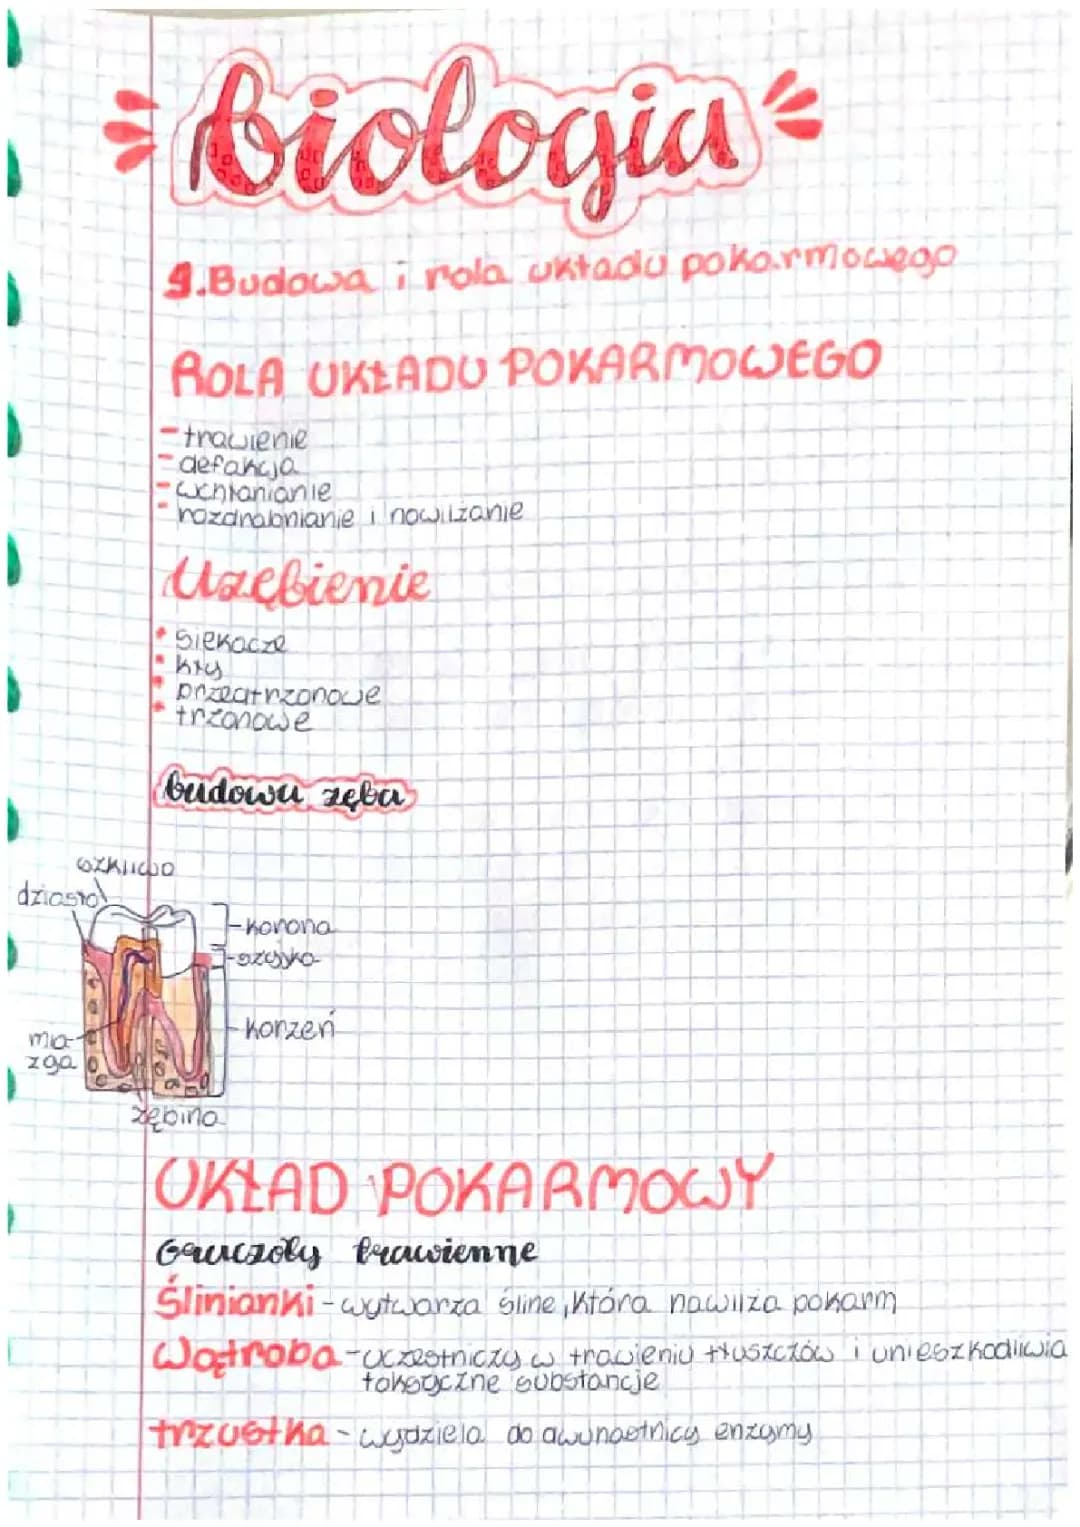 biologia
9.Budowa i rola układu pokarmowego
ROLA UKŁADU POKARMOWEGO
- trawienie
- defakcja
- wchłanianie
- rozdrabnianie i nawilżanie
Uzębienie
• siekacze
• kły
• przedtrzonowe
• trzonowe
budowa zęba
szkliwo
dziąsło
- korona
- szyjka
- korzeń
mia-
zga
zębina
UKŁAD POKARMOWY
Gruczoły trawienne
Ślinianki - wytwarza śline, która nawilża pokarm
Wątroba - uczestniczy w trawieniu tłuszczów i unieszkodliwia
toksyczne substancje
trzustka - wydziela do dwunastnicy enzymy